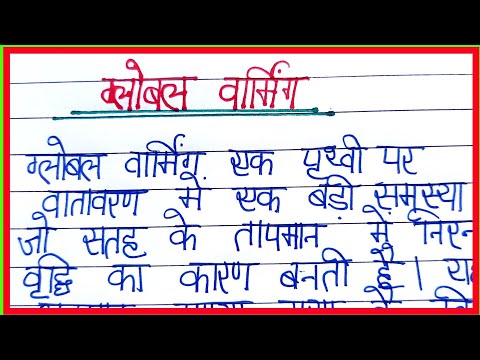 ग्लोबल वार्मिंग
ग्लोबल वार्मिंग, एक पृथ्वी पर
वातावरण में एक बड़ी समस्या
जो सतह के तापमान में निरन
वृद्धि का कारण बनती है। यह